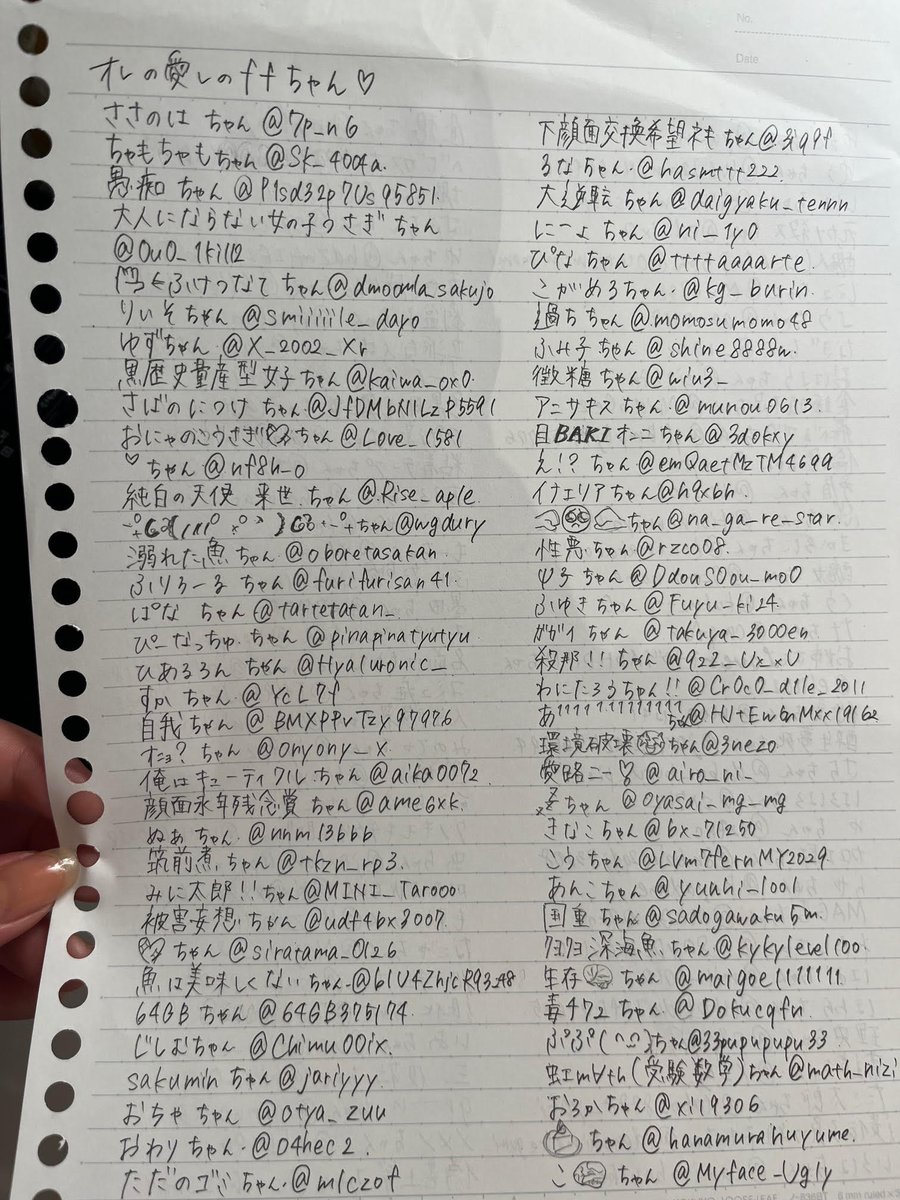 No.
Date
オレの愛しのffちゃん♡
ささのは ちゃん @7p_n6
ちゃもちゃもちゃん @Sk_4004a.
愚痴 ちゃん @P1sd32p7Us95851.
大人にならない女の子うさぎちゃん
@OuO_1kill2
ふけつなて ちゃん @dmoomla_sakujo
りぃそちゃん @smiiiiile_dayo
ゆずちゃん. @X_2002_Xr
黒歴史量産型女子ちゃん@kaiwa_oxo.
さばのにつけ ちゃん.@JfDMbN1LzP5591
おにゃのこうさぎ ちゃん @Love_1581
♡ちゃん @nf8h_o
純白の天使 来世 ちゃん@Rise_aple.
ちゃん@wgdury
溺れた魚ちゃん @oboretasakan.
ふりろーる ちゃん @furifurisan41.
ぱな ちゃん @tartetatan_
ぴーなっちゅ.ちゃん @pinapinatyutyu
ひあるろん ちゃん @Hyaluronic_
すか ちゃん.@YcL7f
自我ちゃん @BMXPPvTzy97976
ちゃん @onyony_x.
俺はキューティクル ちゃん @aika0072
顔面永年残念賞 ちゃん @ame6xk.
ぬぁ ちゃん. @nnm13bbb
筑前煮 ちゃん @tkzn_rp3.
みに太郎!! ちゃん@MINI_Tarooo
被害妄想 ちゃん @udf4bx3007.
ちゃん @siratama_0126
魚は美味しくないちゃん.@b1U4ZhjcR93_48
64GB ちゃん @64GB375174.
じしおちゃん @Chimu00ix.
sakumin ちゃん @jariyyy.
おちゃ ちゃん @otya_zuu
おわり ちゃん. @04hec2
ただのゴミ ちゃん.@mlczof
下顔面交換希望 ちゃん@3iq9f
るな ちゃん.@hasmttt222.
大逆転 ちゃん @daigyaku_tennn
にーよ ちゃん @ni_1y0
ぴな ちゃん @ttttaaaarte.
こがめるちゃん. @kg_burin.
過ち ちゃん @momosumomo48
ふみ子 ちゃん @shine8888w.
微糖 ちゃん @wiu3_
アニサキス ちゃん.@munou0613.
目BAKI オンニ ちゃん @3dokxy
え!? ちゃん @emQaetMzTM4699
イナエリアちゃん@h9xbh.
ちゃん @na_ga_re_star.
性悪 ちゃん @rzco08.
ψ子 ちゃん @DdouSOou_moO
ふゆき ちゃん @Fuyu_ki24.
ガガイ ちゃん @takuya_3000en
殺那!! ちゃん @922_UxxU
わにたろうちゃん!! @CrOcO_d1le_2011
あ ちゃん@HJtEwbnMxx19162
環境破壊 ちゃん@3nezo
愛略二ー♡ @airo_ni_
ちゃん @oyasai_mg_mg
きなこちゃん @bx_71250
こう ちゃん @LVm7fernMY2029
あんこちゃん @yunhi_1001
国重 ちゃん@sadogawaku5m.
ｸﾖｸﾖ深海魚 ちゃん @kykylevel100.
生存 ちゃん @maigoe1111111.
毒 ちゃん @Dokucqfn.
ぷぷぷ ちゃん@33pupupupu33
虹m∀th(受験数学)ちゃん @math_nizi
おろかちゃん @xi19306
ちゃん @hanamurahuyume.
こ ちゃん @Myface_Ugly